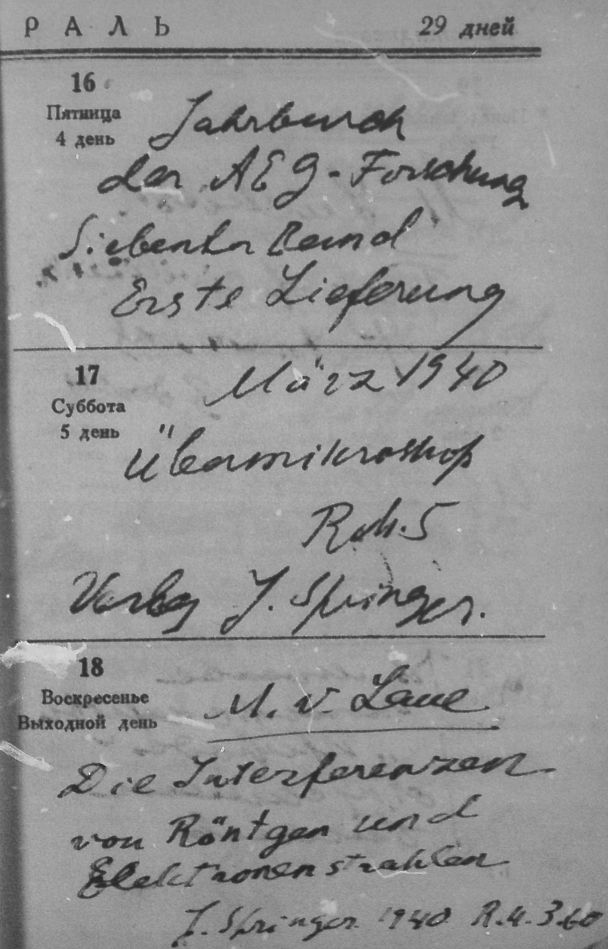 РАЛЬ 29 дней
16
Пятница
4 день
Jahrbuch
der AEG-Forschung
Siebenter Band
Erste Lieferung
17
Суббота
5 день
März 1940
Übermikroskop
R.M. 5
Verlag J. Springer.
18
Воскресенье
Выходной день
M. v Laue
Die Interferenzen
von Röntgen und
Elektronenstrahlen
J. Springer 1940 R.M. 3.60